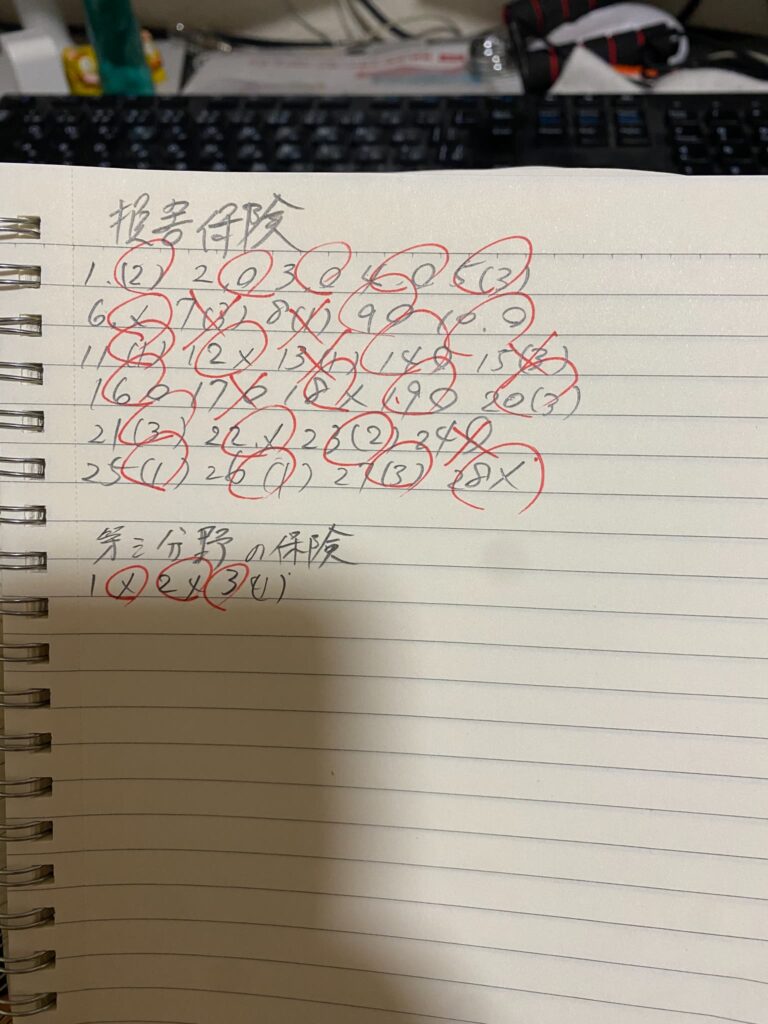 損害保険
1.(2) 2.○ 3.○ 4.○ 5(3)
6.× 7(3) 8(1) 9○ 10.○
11(1) 12× 13(1) 14○ 15(3)
16○ 17○ 18× 19○ 20(3)
21(3) 22.× 23(2) 24○
25(1) 26(1) 27(3) 28×
第三分野の保険
1× 2× 3(1)